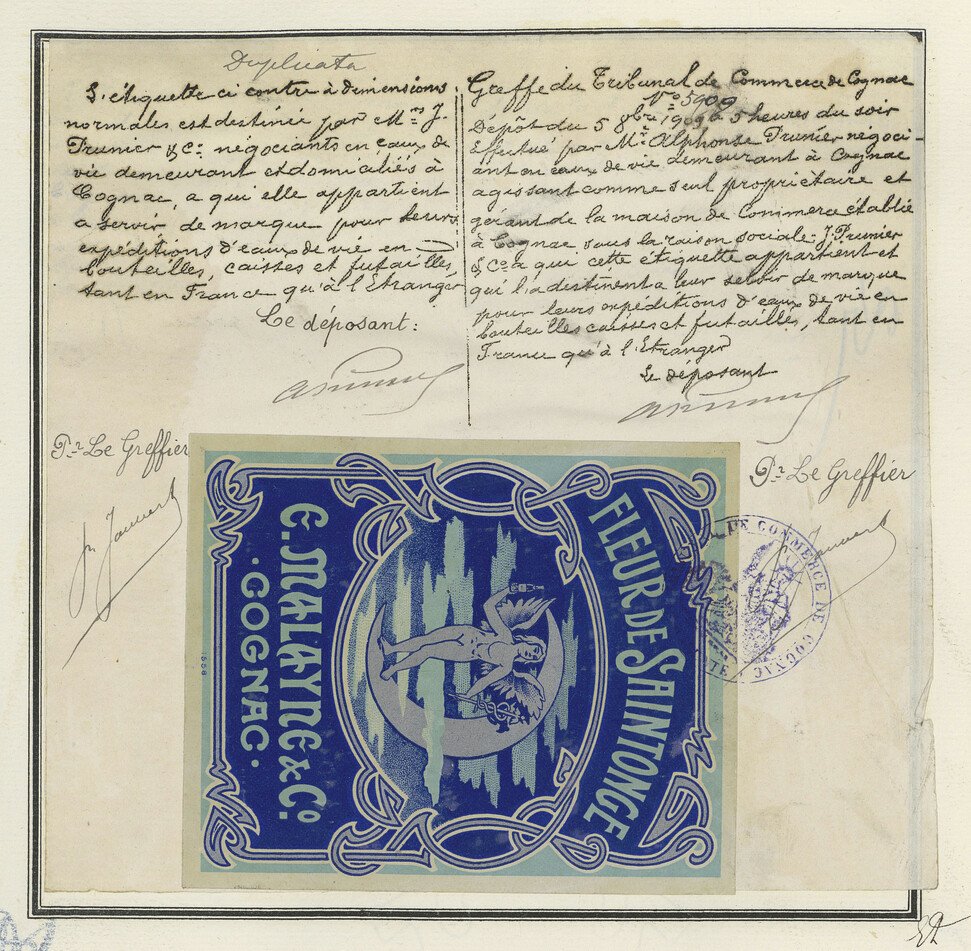 Duplicata
L'étiquette ci contre à dimensions
normales est destinée par Mrs J.
Prunier & Co négociants en eaux de
vie demeurant et domiciliés à
Cognac, a qui elle appartient
a servir de marque pour leurs
expéditions d'eaux de vie en
bouteilles, caisses et futailles,
tant en France qu'à l'Etranger
Le déposant:
Greffe du Tribunal de Commerce de Cognac
No 5909
Dépôt du 5 9bre 1909 à 5 heures du soir
Effectué par Mr Alphonse Prunier négoci-
ant en eaux de vie demeurant à Cognac
agissant comme seul propriétaire et
gérant de la maison de Commerce établie
à Cognac sous la raison sociale: J. Prunier
& Co a qui cette étiquette appartient et
qui l'a destinent a leur servir de marque
pour leurs expéditions d'eaux de vie en
bouteilles caisses et futailles, tant en
France qu'à l'Etranger
Le déposant
Pr Le Greffier
Pr Le Greffier
FLEUR DE SAINTONGE
E. MALYNE & Co.
·COGNAC·
DE COMMERCE DE COGNAC